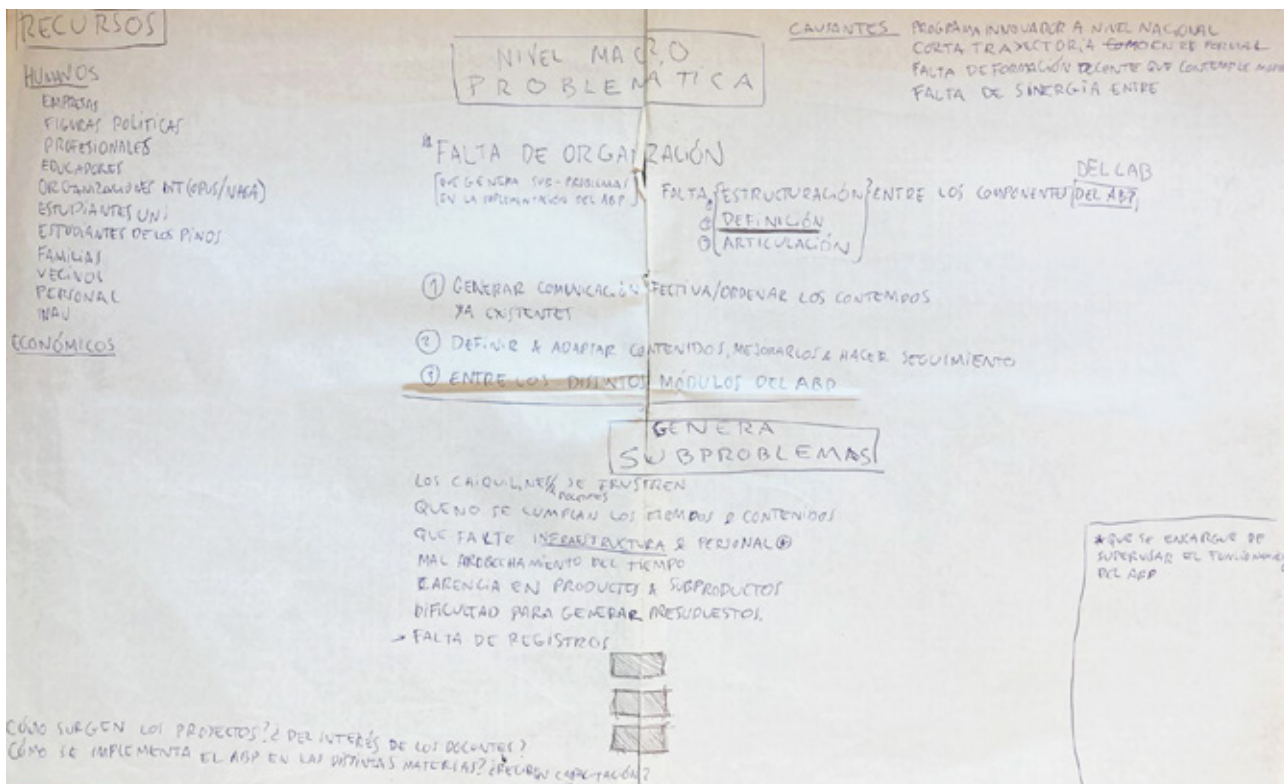 RECURSOS
HUMANOS
EMPRESAS
FIGURAS POLÍTICAS
PROFESIONALES
EDUCADORES
ORGANIZACIONES INT (OPUS/
ESTUDIANTES UNI
ESTUDIANTES DE LOS PINOS
FAMILIAS
VECINOS
PERSONAL
ECONÓMICOS
NIVEL MACRO
PROBLEMÁTICA
CAUSANTES PROGRAMA INNOVADOR A NIVEL NACIONAL
CORTA TRAYECTORIA COMO EN ED FORMAL
FALTA DE FORMACIÓN DOCENTE QUE CONTEMPLE
FALTA DE SINERGIA ENTRE
FALTA DE ORGANIZACIÓN
QUE GENERA SUB-PROBLEMAS
EN LA IMPLEMENTACIÓN DEL ABP
DEL LAB
FALTA ESTRUCTURACIÓN ENTRE LOS COMPONENTES DEL ABP
② DEFINICIÓN
③ ARTICULACIÓN
① GENERAR COMUNICACIÓN EFECTIVA/ORDENAR LOS CONTENIDOS
YA EXISTENTES
② DEFINIR & ADAPTAR CONTENIDOS, MEJORARLOS & HACER SEGUIMIENTO
③ ENTRE LOS DISTINTOS MÓDULOS DEL ABP
GENERA
SUBPROBLEMAS
LOS CHIQUILINES/DOCENTES SE FRUSTREN
QUE NO SE CUMPLAN LOS TIEMPOS & CONTENIDOS
QUE FALTE INFRAESTRUCTURA & PERSONAL
MAL APROBECHAMIENTO DEL TIEMPO
CARENCIA EN PRODUCTOS & SUBPRODUCTOS
DIFICULTAD PARA GENERAR PRESUPUESTOS.
→ FALTA DE REGISTROS
* QUE SE ENCARGUE DE
SUPERVISAR EL
DEL ABP
CÓMO SURGEN LOS PROYECTOS? ¿DEL INTERÉS DE LOS DOCENTES?
CÓMO SE IMPLEMENTA EL ABP EN LAS DISTINTAS MATERIAS? ¿RECIBEN CAPACITACIÓN?